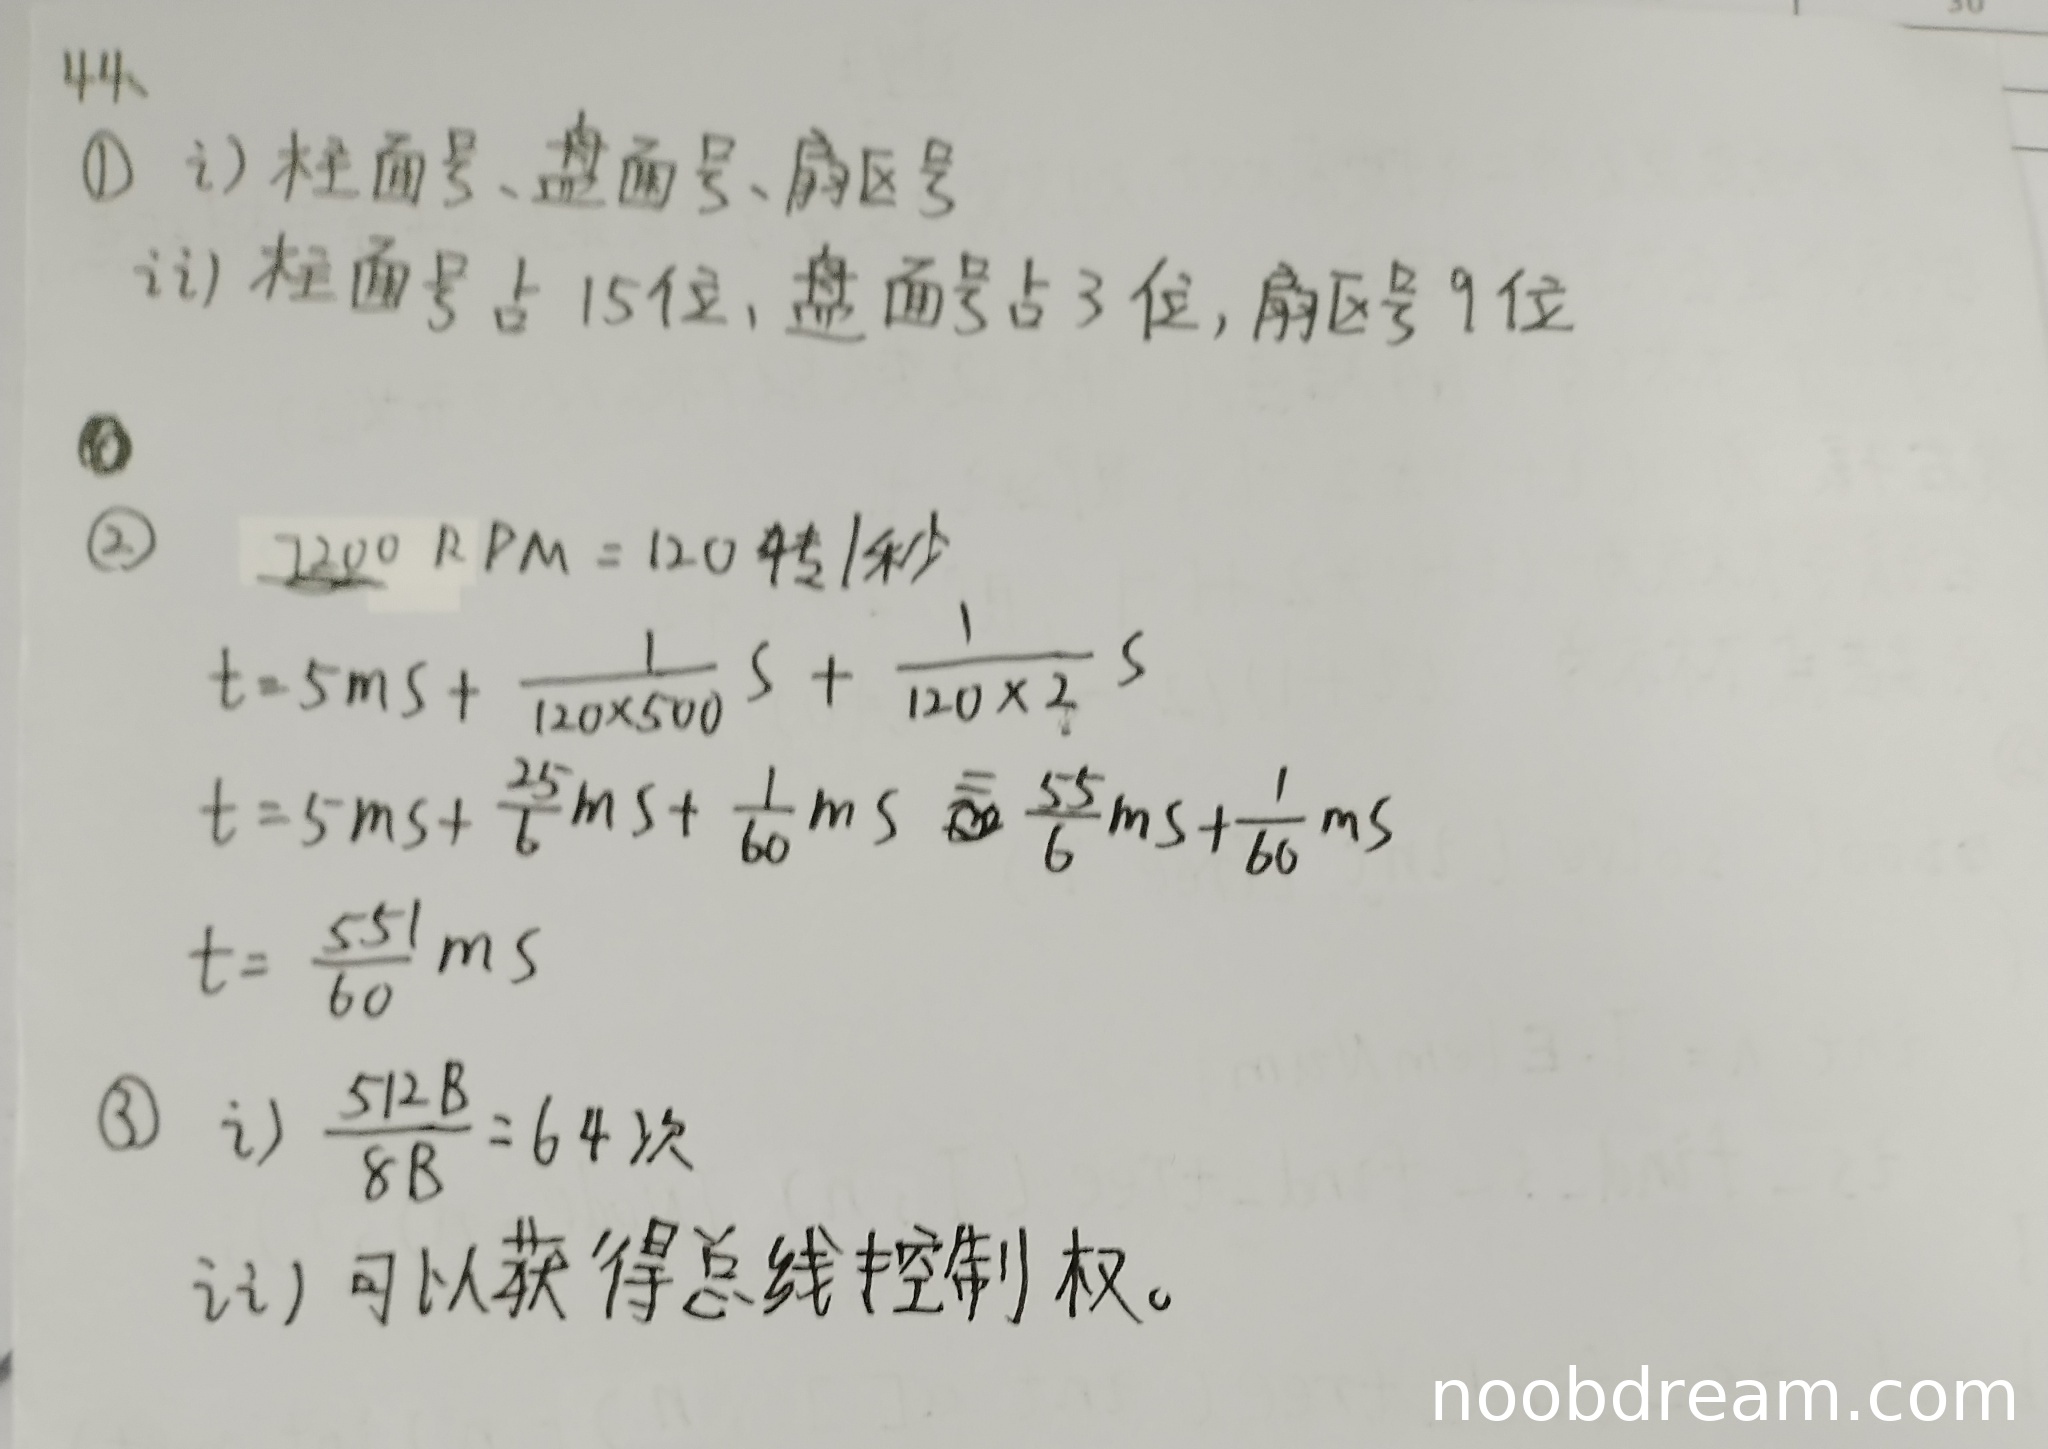 30
44、
① i) 柱面号、盘面号、扇区号
ii) 柱面号占15位, 盘面号占3位, 扇区号9位
② 7200 RPM = 120转/秒
t = 5ms + \frac{1}{120×500} s + \frac{1}{120×2} s
t = 5ms + \frac{25}{6} ms + \frac{1}{60} ms = \frac{55}{6} ms + \frac{1}{60} ms
t = \frac{551}{60} ms
③ i) \frac{512B}{8B} = 64次
ii) 可以获得总线控制权。
noobdream.com